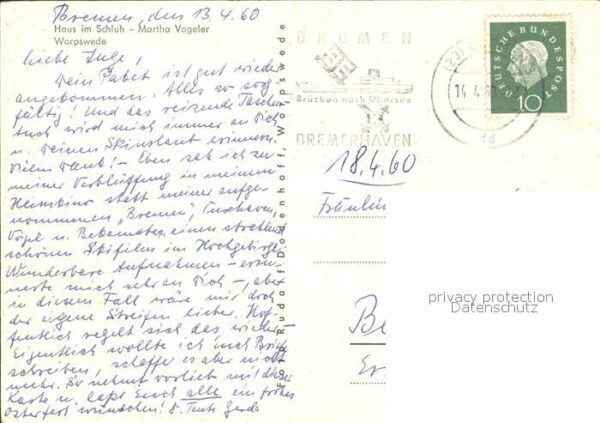 Bremen, den 13.4.60
Haus im Schluh – Martha Vogeler
Worpswede
Liebe Inge,
Dein Paket ist gut wieder
angekommen. Alles so sorg-
fältig! Und das reizende Taschen
tuch wird mich immer an Dich
u. Deinen Skiurlaub erinnern.
Vielen Dank! – Eben sah ich zu
meiner Verblüffung in meinem
Heimkino statt meiner aufge-
nommenen "Bremen", Cuxhaven,
Vögel u. Bekannten einen strahlend
schönen Skifilm im Hochgebirge.
Wunderbare Aufnahmen – erin-
nerte mich sehr an Dich –, aber
in diesem Fall wäre mir doch
der eigene Streifen lieber. Hof-
fentlich regelt sich das wieder –
Eigentlich wollte ich Euch Briefe
schreiben, schaffe es aber nicht
mehr. So nehmt vorlieb mit dieser
Karte u. lasst Euch alle ein frohes
Osterfest wünschen! D. Tante Gerda
Foto Rudolf Dodenhoff, Worpswede
BREMEN
Brücken nach Übersee
BREMERHAVEN
14.4.60
DEUTSCHE BUNDESPOST
10
18.4.60
Fräulein
privacy protection
Datenschutz